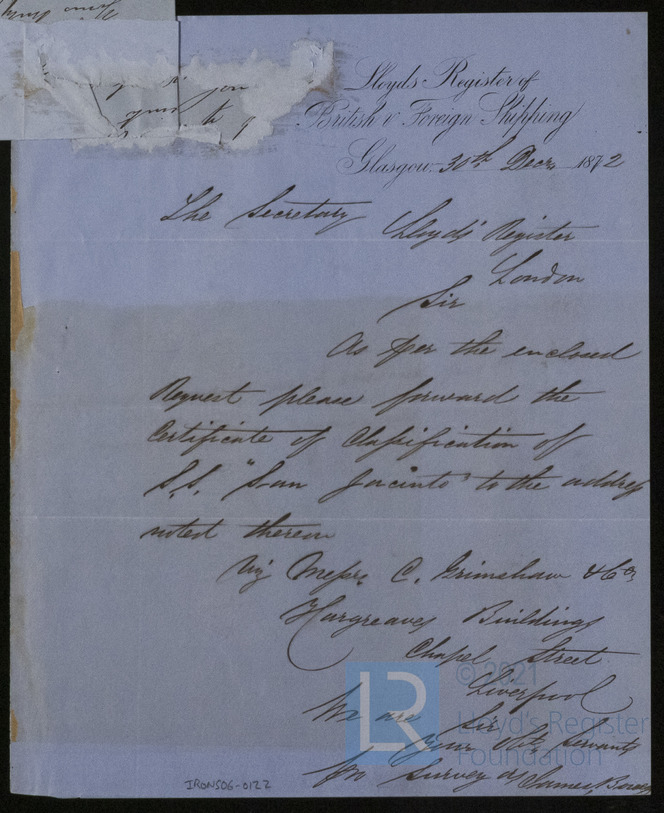 Lloyds Register of
British & Foreign Shipping
Glasgow 30th Decr. 1872
The Secretary
Lloyds' Register
London
Sir
As per the enclosed
Request please forward the
Certificate of Classification of
S.S. "San Jacinto" to the address
noted thereon
Viz Messrs. C. Grimshaw & Co.
Hargreaves Buildings
Chapel Street
Liverpool
We are Sir
Your Obt. Servants
for Surveyors James
© 2021
LR
Lloyd's Register
Foundation
IRON506-0122